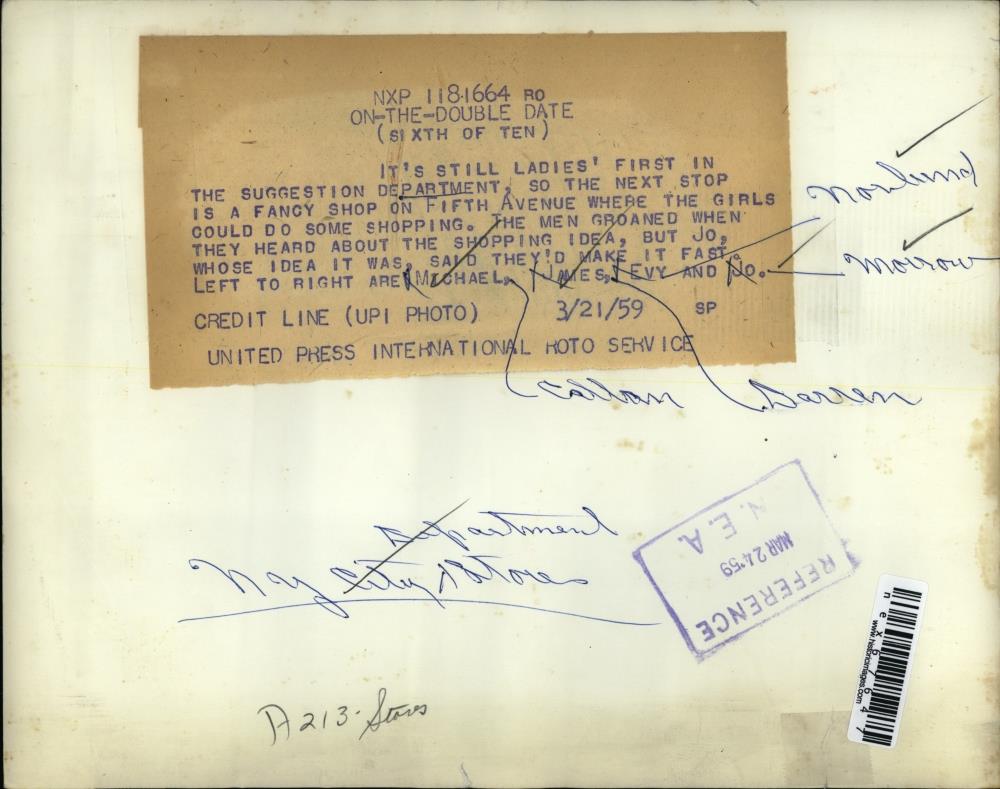 NXP 1181664 RO
ON-THE-DOUBLE DATE
(SIXTH OF TEN)
IT'S STILL LADIES' FIRST IN
THE SUGGESTION DEPARTMENT, SO THE NEXT STOP
IS A FANCY SHOP ON FIFTH AVENUE WHERE THE GIRLS
COULD DO SOME SHOPPING. THE MEN GROANED WHEN
THEY HEARD ABOUT THE SHOPPING IDEA, BUT JO,
WHOSE IDEA IT WAS, SAID THEY'D MAKE IT FAST.
LEFT TO RIGHT ARE MICHAEL, JAMES, EVY AND JO.
CREDIT LINE (UPI PHOTO) 3/21/59 SP
UNITED PRESS INTERNATIONAL ROTO SERVICE
Norlund
Morrow
Callan
Darren
Department
N Y City Stores
REFERENCE
MAR 24 '59
N. E. A.
A213. Stores
www.historicimages.com
nex67647